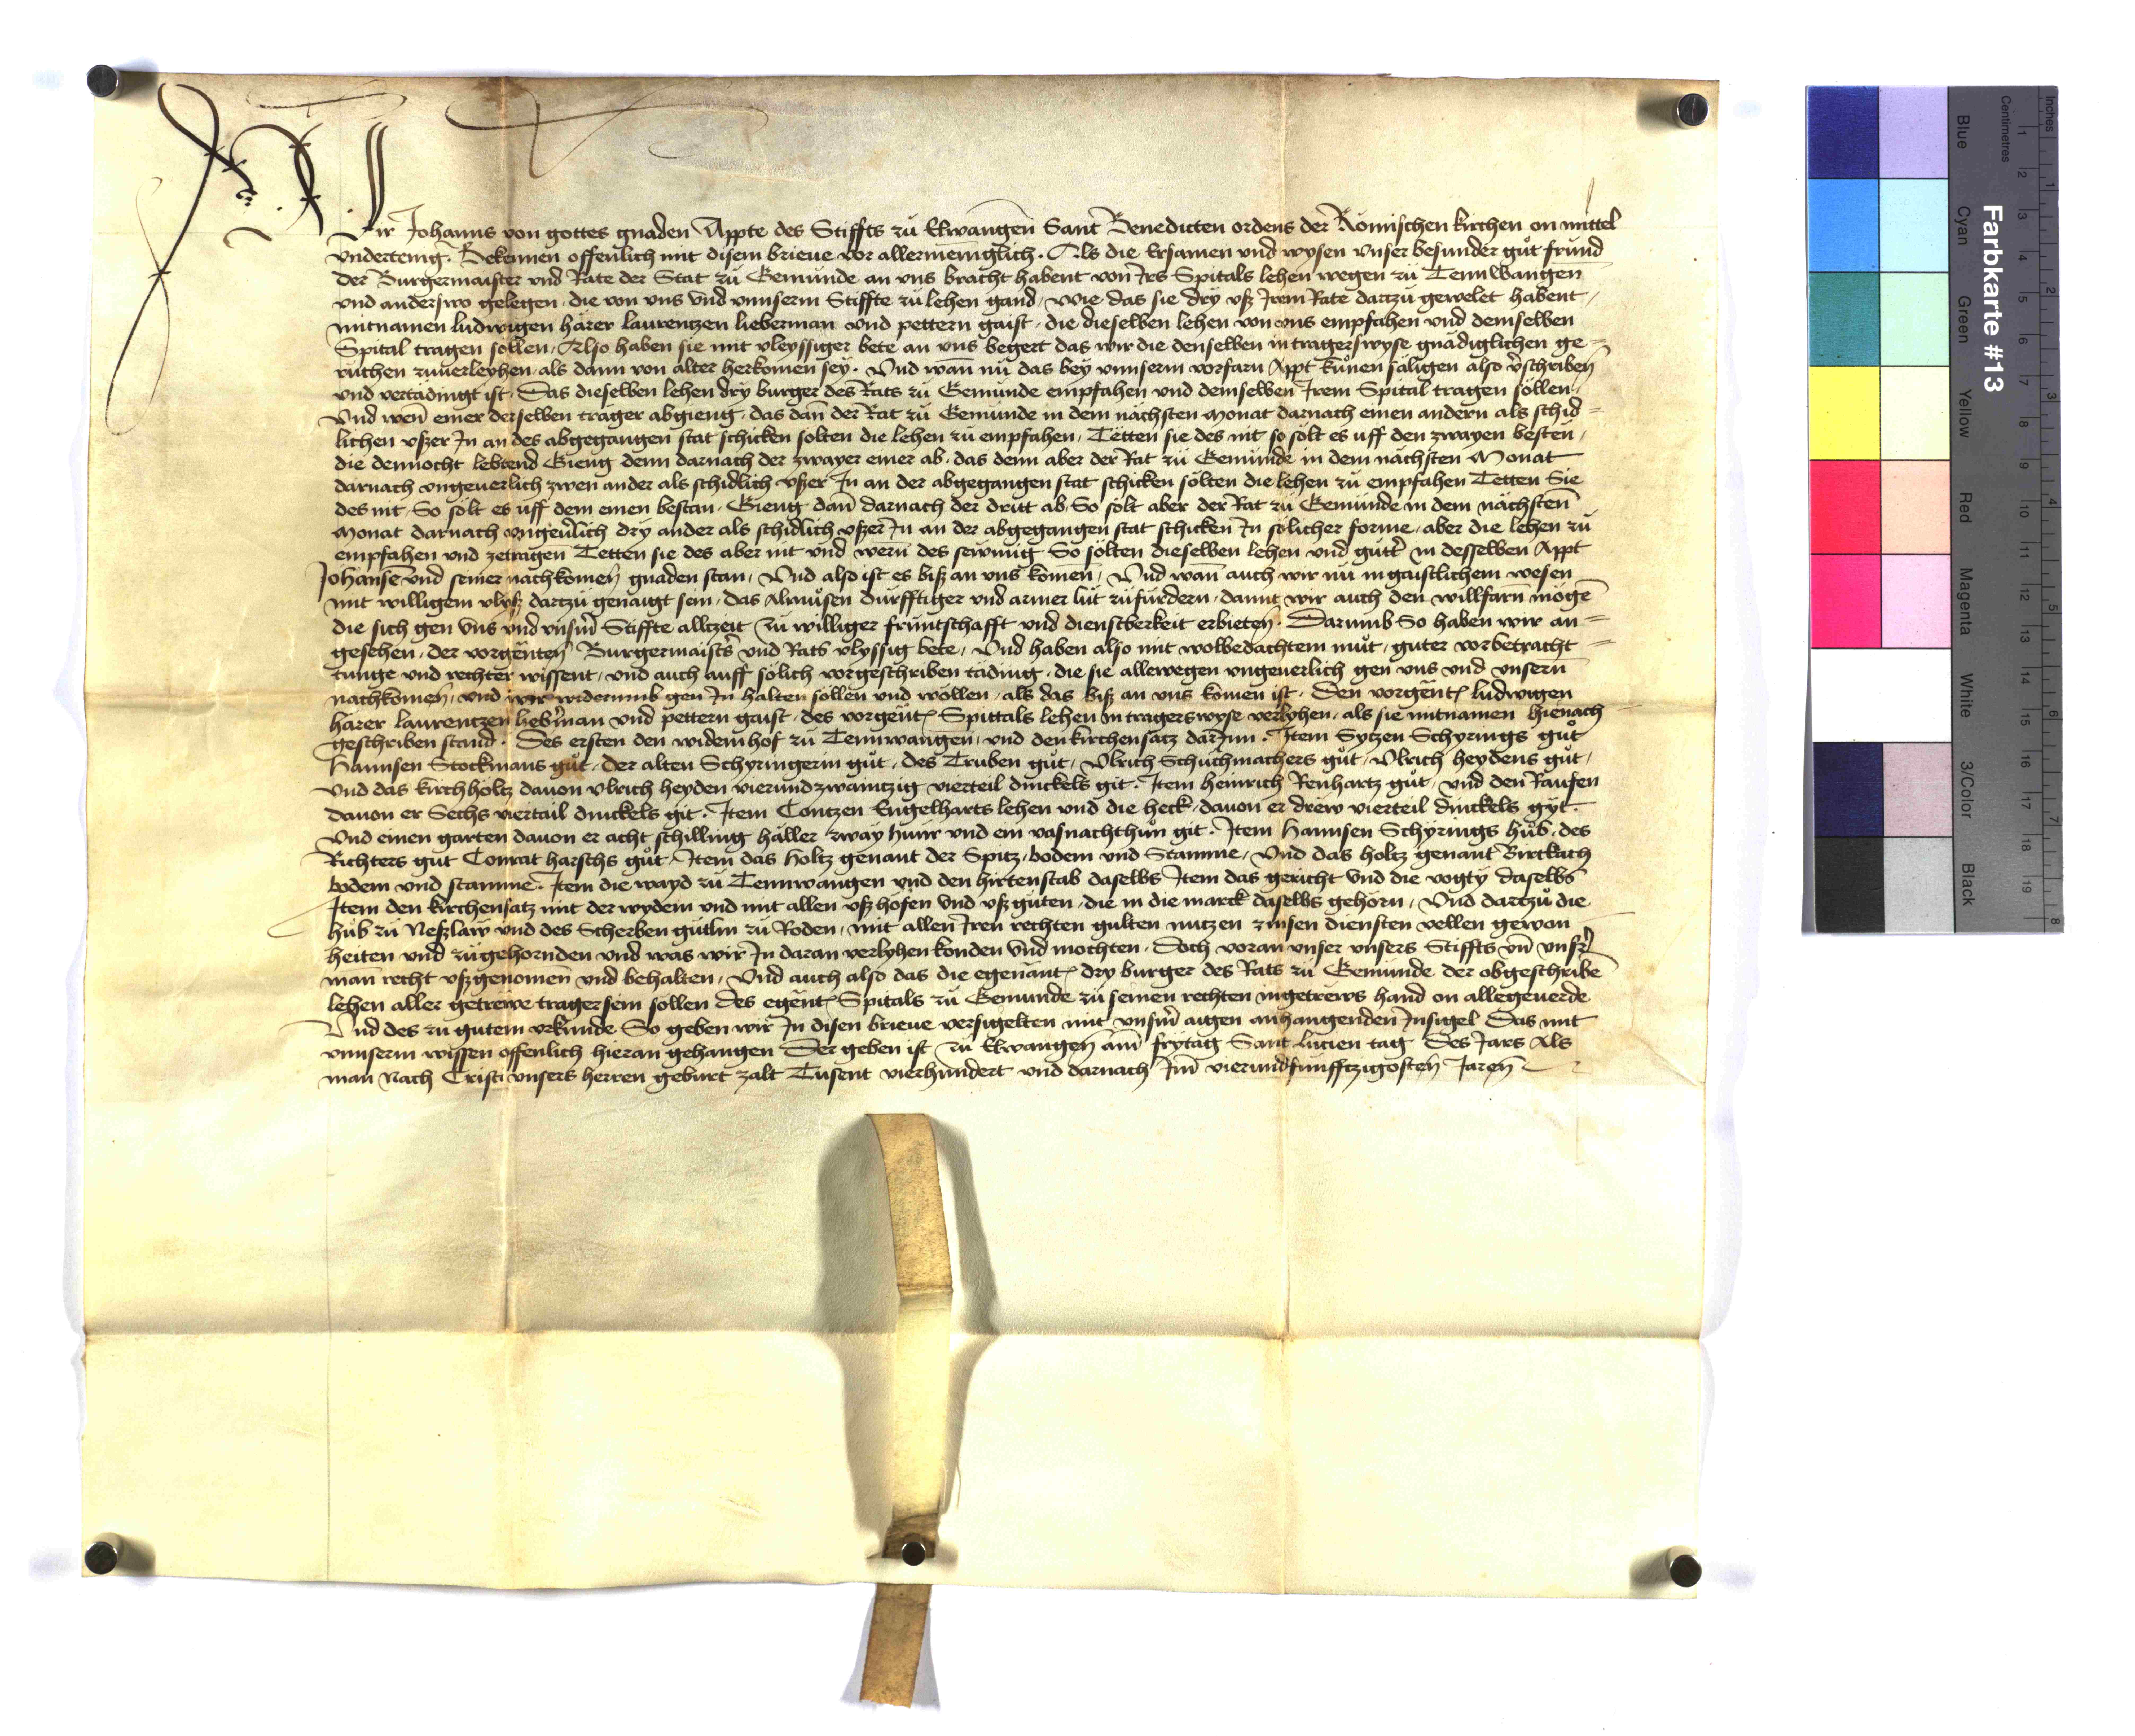 Wir Johanns von gottes gnaden Appte des Stiffts zu Elwangen Sant Benedicten ordens der Römischen kirchen on mittel
vndertenig. Bekennen offenlich mit disem brieue vor allermeniglich. Als die Ersamen vnd wysen vnser besunder gůt fründ
der Burgermaister vnd Rate der Stat zu Gemünde an vns bracht habent von Irs Spitals lehen wegen zu Tennwangen
vnd anderswo gelegen, die von vns vnd vnnserm Stiffte zu lehen gand, wie das sie dry vsz Irem Rate dartzu gewelet habent,
mitnamen ludwigen härer laurentzen lieberman vnd pettern gaist, die dieselben lehen von vns empfahen vnd demselben
Spital tragen söllen. Also haben sie mit vleyssiger bete an vns begert das wir die denselben in tragerswyse gnädiglichen ge=
ruchen zuuerleyhen, als dann von alter herkomen sey. Vnd wan̄ nü das bey vnnserm vorfarn Appt kůnen säligen also v̄schriben
vnd vertädingt ist. Das dieselben lehen dry burger des Rats zu Gemünde empfahen vnd demselben Irem Spital tragen söllen,
Vnd wen̄ einer derselben trager abgieng, das dan̄ der Rat zu Gemünde in dem nächsten Monat darnach einen andern als schid=
lichen vszer In an des abgegangen stat schicken sölten die lehen zu empfahen, Tëtten sie des nit so sölt es uff den zwayen besten,
die dennocht lebtend Gieng denn darnach der zwayer einer ab, das denn aber der Rat zu Gemünde in dem nächsten Monat
darnach vngeuerlich zwen ander als schidlich vszer In an der abgegangen stat schicken sölten die lehen zu empfahen Tetten Sie
des nit, So sölt es uff dem einen bestan, Gieng dan̄ darnach der dritt ab, So sölt aber der Rat zu Gemünde in dem nächsten
Monat darnach vngeu̇lich dry ander als schidlich vszer In an der abgegangen stat schicken In sölicher forme, aber die lehen zu
empfahen vnd zetragen Tetten sie des aber nit vnd wern des sewmig So sölten dieselben lehen vnd gütt̄ in desselben Appt
Johansen̄ vnd seiner nachkömen̄ gnaden stan, Vnd also ist es bisz an vns komen̄, Vnd wan̄ auch wir nü in gaistlichem wesen
mit willigem vlysz dartzu genaigt sein, das Almůsen dürfftiger vnd armer lüt zufürdern, damit wir auch den willfarn mögē
die sich gen vns vnd vnsm̄ Stiffte alltzeit zu williger früntschafft vnd dienstberkeit erbieten. Darumb So haben wir an=
gesehen, der vorgen̄ten̄ Burgermaist̄s vnd Rats vlyssig bete, Vnd haben also mit wolbedachtem můt, guter vorbetracht=
tunge vnd rechter wissent, vnd auch auff sölich vorgeschriben täding, die sie allewegen vngeuerlich gen vns vnd vnsern̄
nachkömen̄, vnd wir widerumb gen In halten söllen vnd wöllen, als das bisz an vns komen ist. Den vorgen̄t̄ ludwigen
härer laurentzen lieb̄man vnd pettern gaist, des vorgen̄t̄ Spittals lehen in tragerswyse verlyhen, als sie mitnamen hienach
geschriben stand. Des ersten den widemhof zu Tennwangen̄, vnd den kirchensatz darInn. Item Sytzen Schyrings gůt
Hannsen Stockmans gůt, der alten Schyringerin gůt, des Truben gůt, Vlrich Schůchmachers gůt, Vlrich heydens gůt,
Vnd das kirchholtz dauon vlrich heyden vierundzwaintzig vierteil dinckels git. Item heinrich Renhartz gůt, vnd den Raufen
dauon er Sechs viertail dinckels git. Item Contzen Engelharts lehen vnd die heck, dauon er drew vierteil dinckels gyt.
Vnd einen garten dauon er acht schilling häller zway hünr vnd ein vasnachthůn git. Item Hannsen Schyrings hůb, des
Richters gůt Conrat harschs gůt. Item das Holtz genant der Spitz, bodem vnd Stamme, Vnd das holtz genant Birckach
bodem vnd stamme. Item die wayd zu Tennwangen vnd den hirtenstab daselbs Item das gericht vnd die vogty daselbs̄
Item den kirchensatz mit der wydem vnd mit allen vsz höfen vnd vsz guten, die in die marck daselbs gehörn, Vnd dartzů die
hůb zu Neszlaw vnd des Scherben gütlin zu Roden, mit allen Iren rechten gulten nutzen zinsen diensten vellen gewon
heiten vnd zügehörnden vnd was wir In daran verlyhen konden vnd mochten. Doch voran vnser vnsers Stiffts vn̄ vnsr̄
man̄ recht vszgenomen̄ vnd behalten, Vnd auch also das die egenant̄ dry burger des Rats zu Gemünde der obgeschribē
lehen aller getrewe trager sein sollen des egen̄t̄ Spitals zu Gemünde zu seinen rechten in getrews hand on allegeuerde
Vnd des zu gutem vrkunde So geben wir In disen brieue versigelten mit vnsm̄ aigen anhangenden Insigel Das mit
vnnserm wissen offenlich hieran gehangen Der geben ist zu Elwangen̄ am̄ frytag Sant lucien tag Des Jars Als
man Nach Cristi vnsers herren geburt zalt Tusent vierhundert vnd darnach Im̄ vierundfünfftzigosten̄ Jaren̄
Farbkarte #13
Blue Cyan Green Yellow Red Magenta White 3/Color Black
Centimetres 1 2 3 4 5 6 7 8 9 10 11 12 13 14 15 16 17 18 19
Inches 1 2 3 4 5 6 7 8